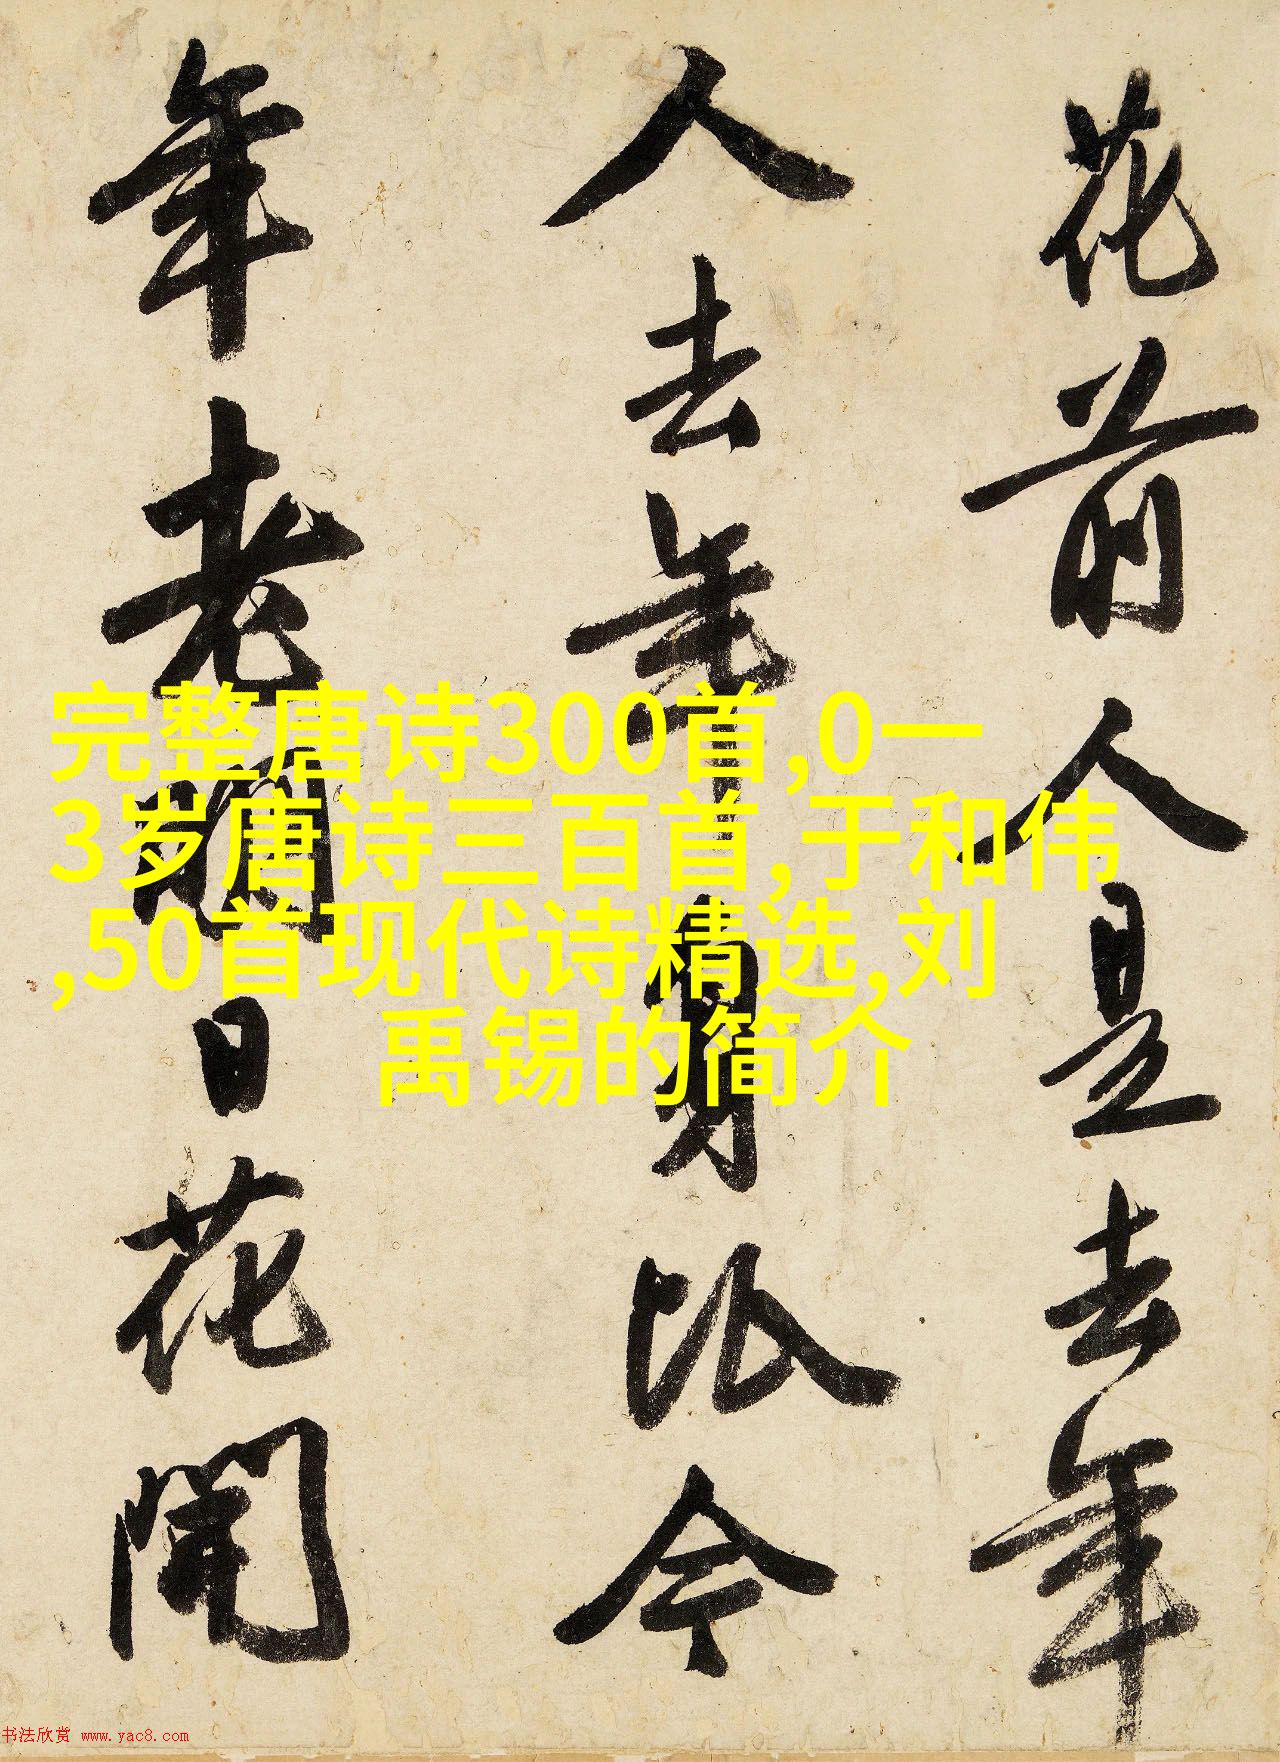 花前人是去年
人去年身比今
年老明日花開
完整唐诗300首,0一
3岁唐诗三百首,于和伟
,50首现代诗精选,刘
禹锡的简介
书法欣赏 www.yac8.com